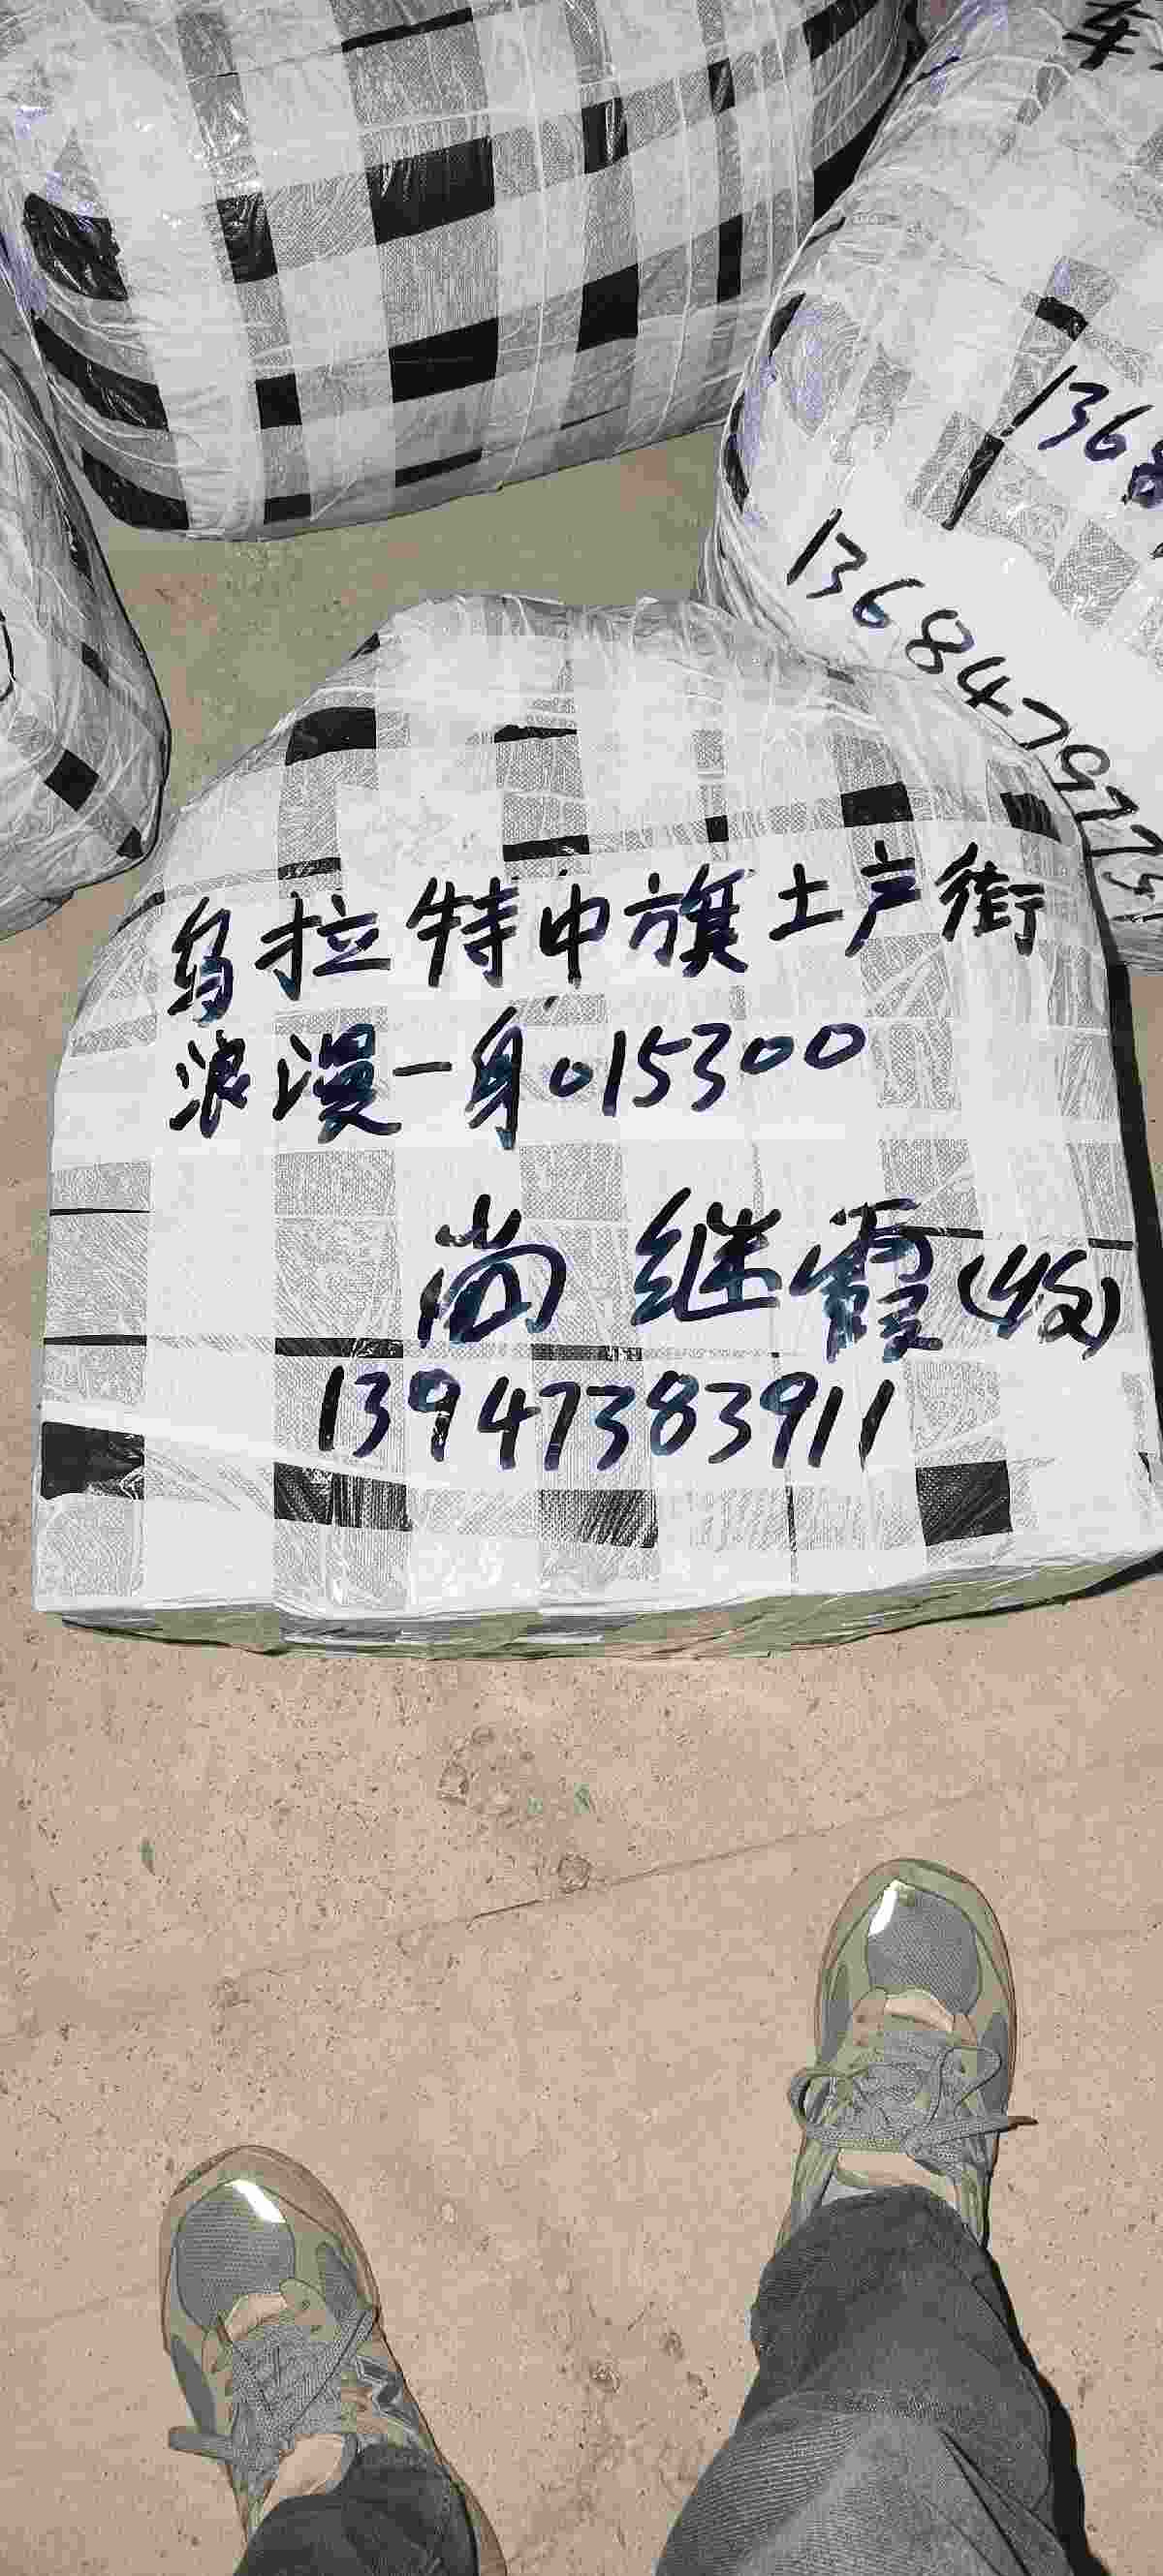 车
1368
13684797751
乌拉特中旗土产街
浪漫一身015300
尚继霞(收)
13947383911